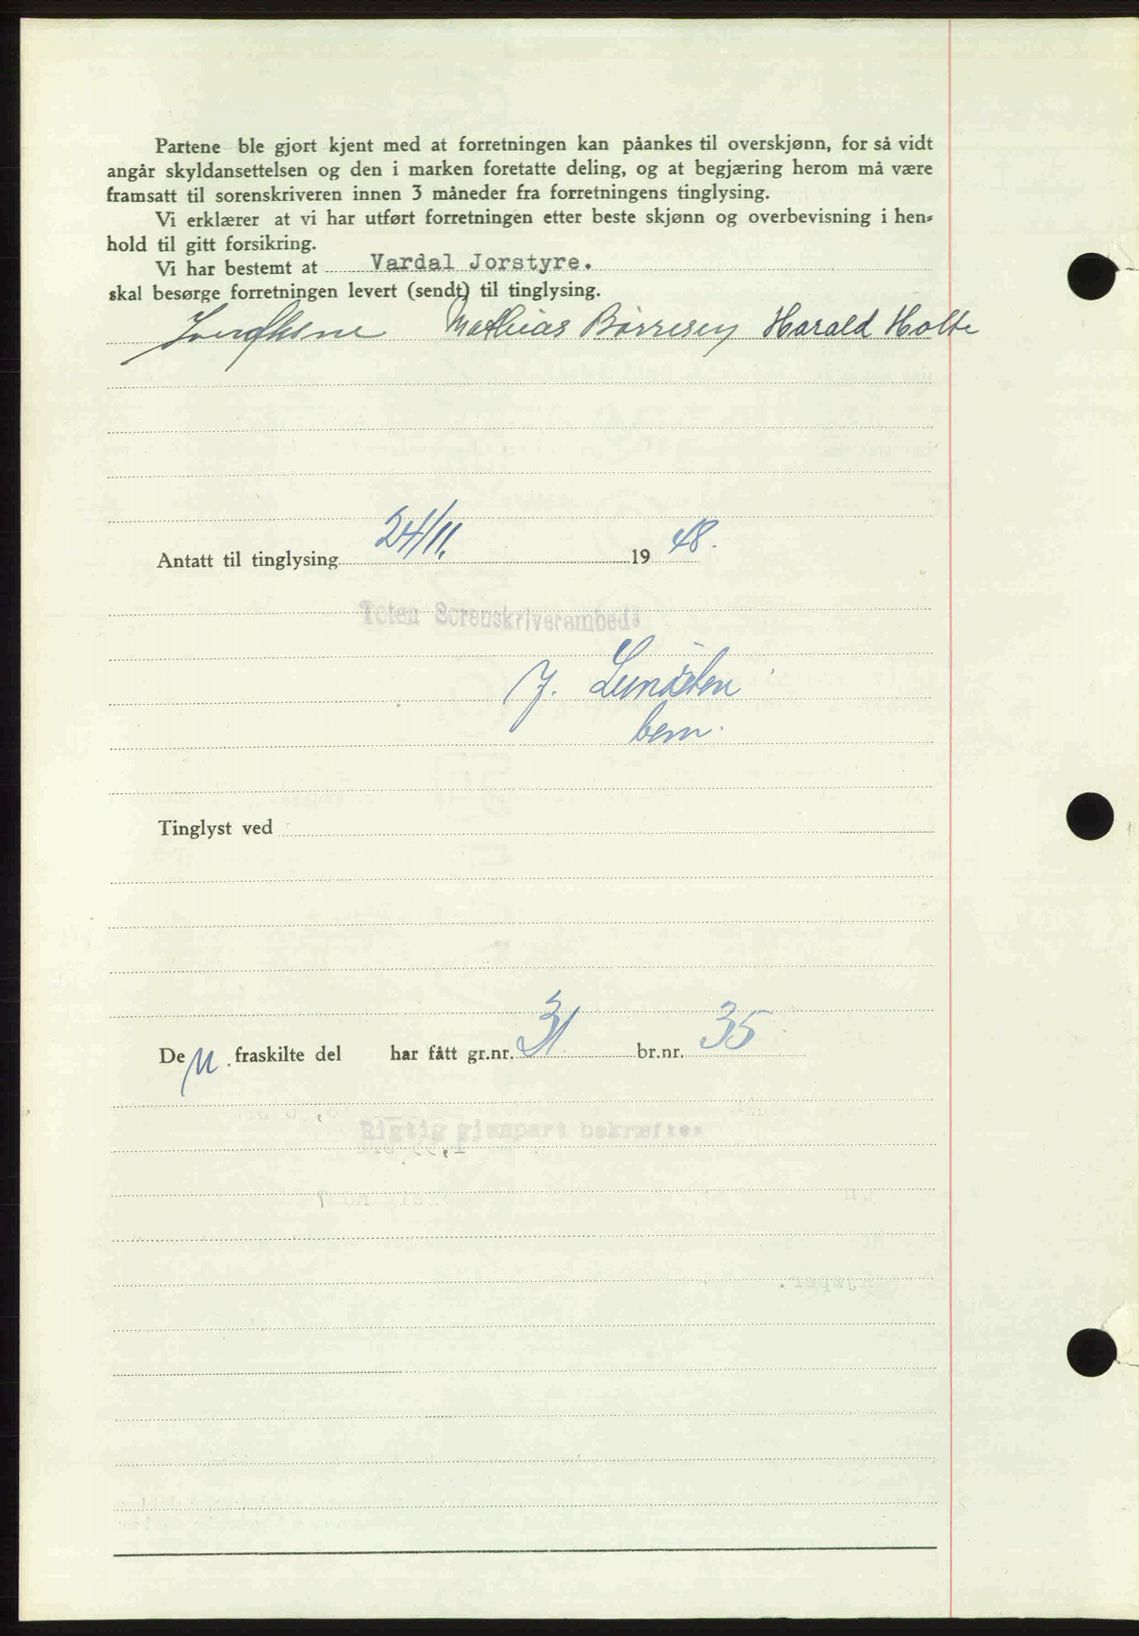 Partene ble gjort kjent med at forretningen kan påankes til overskjønn, for så vidt
angår skyldansettelsen og den i marken foretatte deling, og at begjæring herom må være
framsatt til sorenskriveren innen 3 måneder fra forretningens tinglysing.
Vi erklærer at vi har utført forretningen etter beste skjønn og overbevisning i hen-
hold til gitt forsikring.
Vi har bestemt at Vardal Jorstyre.
skal besørge forretningen levert (sendt) til tinglysing.
Mathias Børresen Harald Holte
Antatt til tinglysing 24/11. 19 48.
Toten Sorenskriverembede
J.
bem.
Tinglyst ved
De n. fraskilte del har fått gr.nr. 31 br.nr. 35
Rigtig gjenpart bekræftes